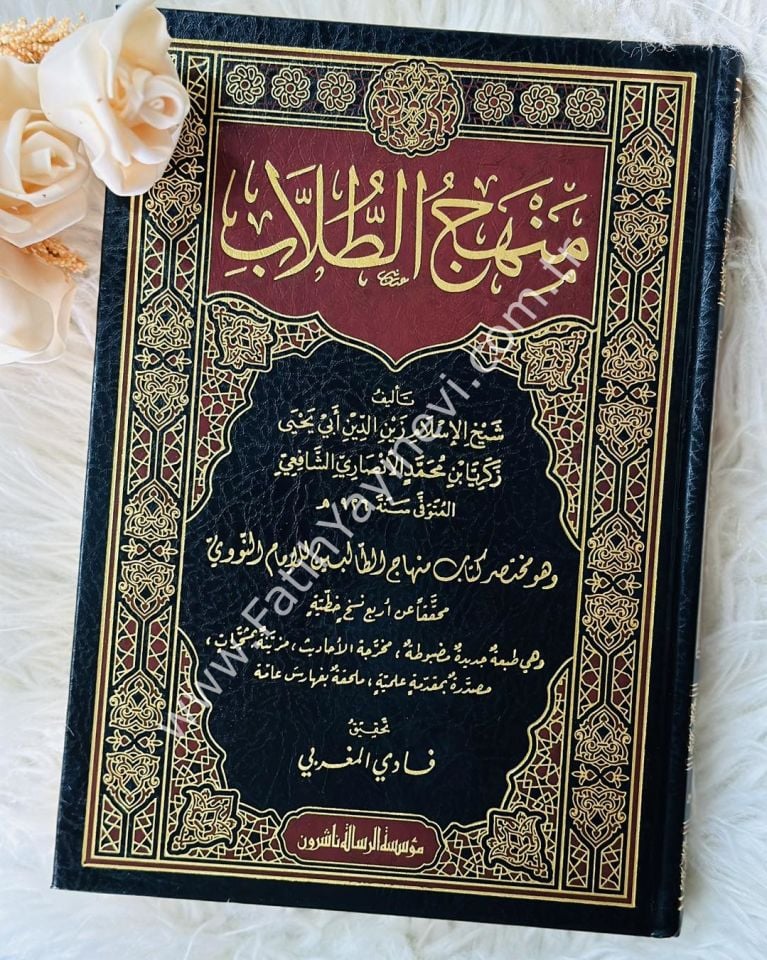 منهج الطلاب
تأليف
شيخ الإسلام زين الدين أبي يحيى
زكريا بن محمد الأنصاري الشافعي
المتوفى سنة ٩٢٦ هـ
وهو مختصر كتاب منهاج الطالبين للإمام النووي
محققاً عن أربع نسخ خطية
وهي طبعة جديدة مضبوطة، مخرجة الأحاديث، مزينة بمشجرات،
مصدرة بمقدمة علمية، ملحقة بفهارس عامة
تحقيق
فادي المغربي
مؤسسة الرسالة ناشرون
www.FatihYayinevi.com.tr